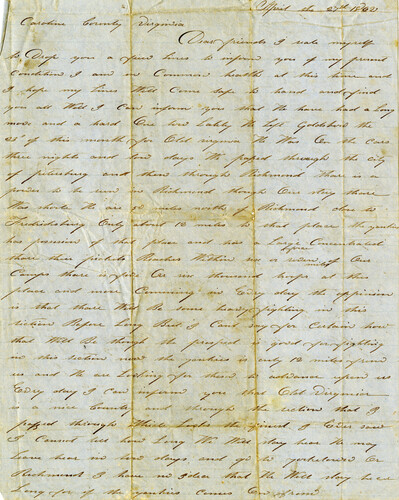 April the 27th 1862
Caroline County Virginia
Dear friends I seate myself
to Drop you a fiew lines to inform you of my present
Condition I am in Common health at this time and
I hope my lines Will Come safe to hand and find
you all Well I Can inform you that We have had a Long
move and a hard One how Lately We Left Goldsboro the
of this month for Old virginia We Was On the Cars
three nights and days We passed through the city
of petersburg and then through Richmond There is a
to be seen in Richmond though Our stay there
Was short We are 42 miles north of Richmond close to
Fredricksburg Only about 12 miles to that place the yankees
has possession of that place and has a Large
there their pickets Reaches Within six or seven miles of Our
Camps there is five Or six thousand troops at this
place and more Comming in Every day the oppinion
is that there Will Be some heavy fighting in this
section Before Long But I Cant say for Certain how
that Will Be though the prospect is good for fighting
in this section now the yankies is only 12 miles from
us and We are Looking for them to advance upon us
Every day I Can inform you that Old Virginia
is a nice County and through the section that I
passed through Wheat Looks the finest I Ever saw
I Cannot tell how Long We Will stay hear We may
Leave hear in few days and go to yorktown Or
Richmond I have no idea that We Will stay here
Long for if the yankies comes On us from